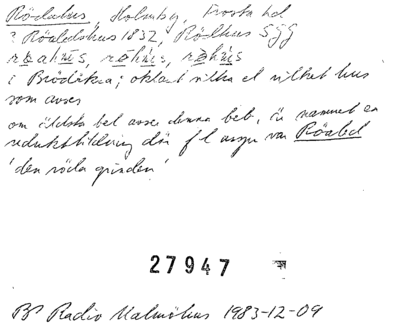 Rödahus, Holmby, Frosta hd
? Röaldshus 1832, Rödhus Sjg
röahus, röhus, röhus
i Brödåkra; oklart vilka el vilket hus
som avses
om äldsta bel avser denna beb, är namnet en
reduktbildning där f l avser var Röaled
'den röda grinden'
27947
Br Radio Malmöhus 1983-12-09